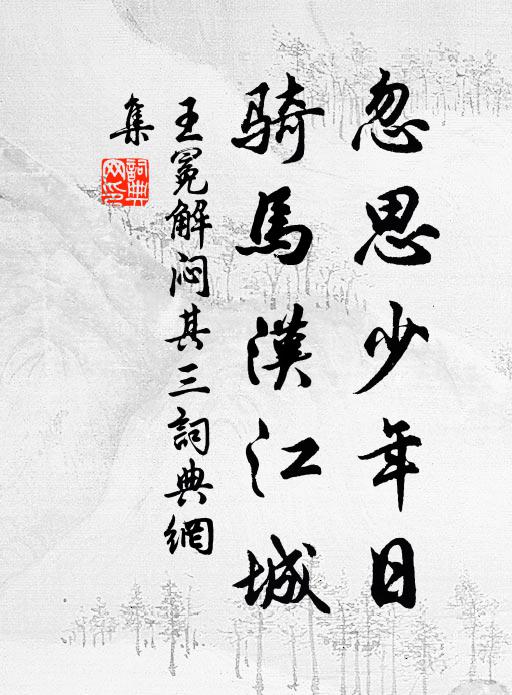 忽思少年日
騎馬漢江城
王冕解闷其三詞典網
集
詞典
网印